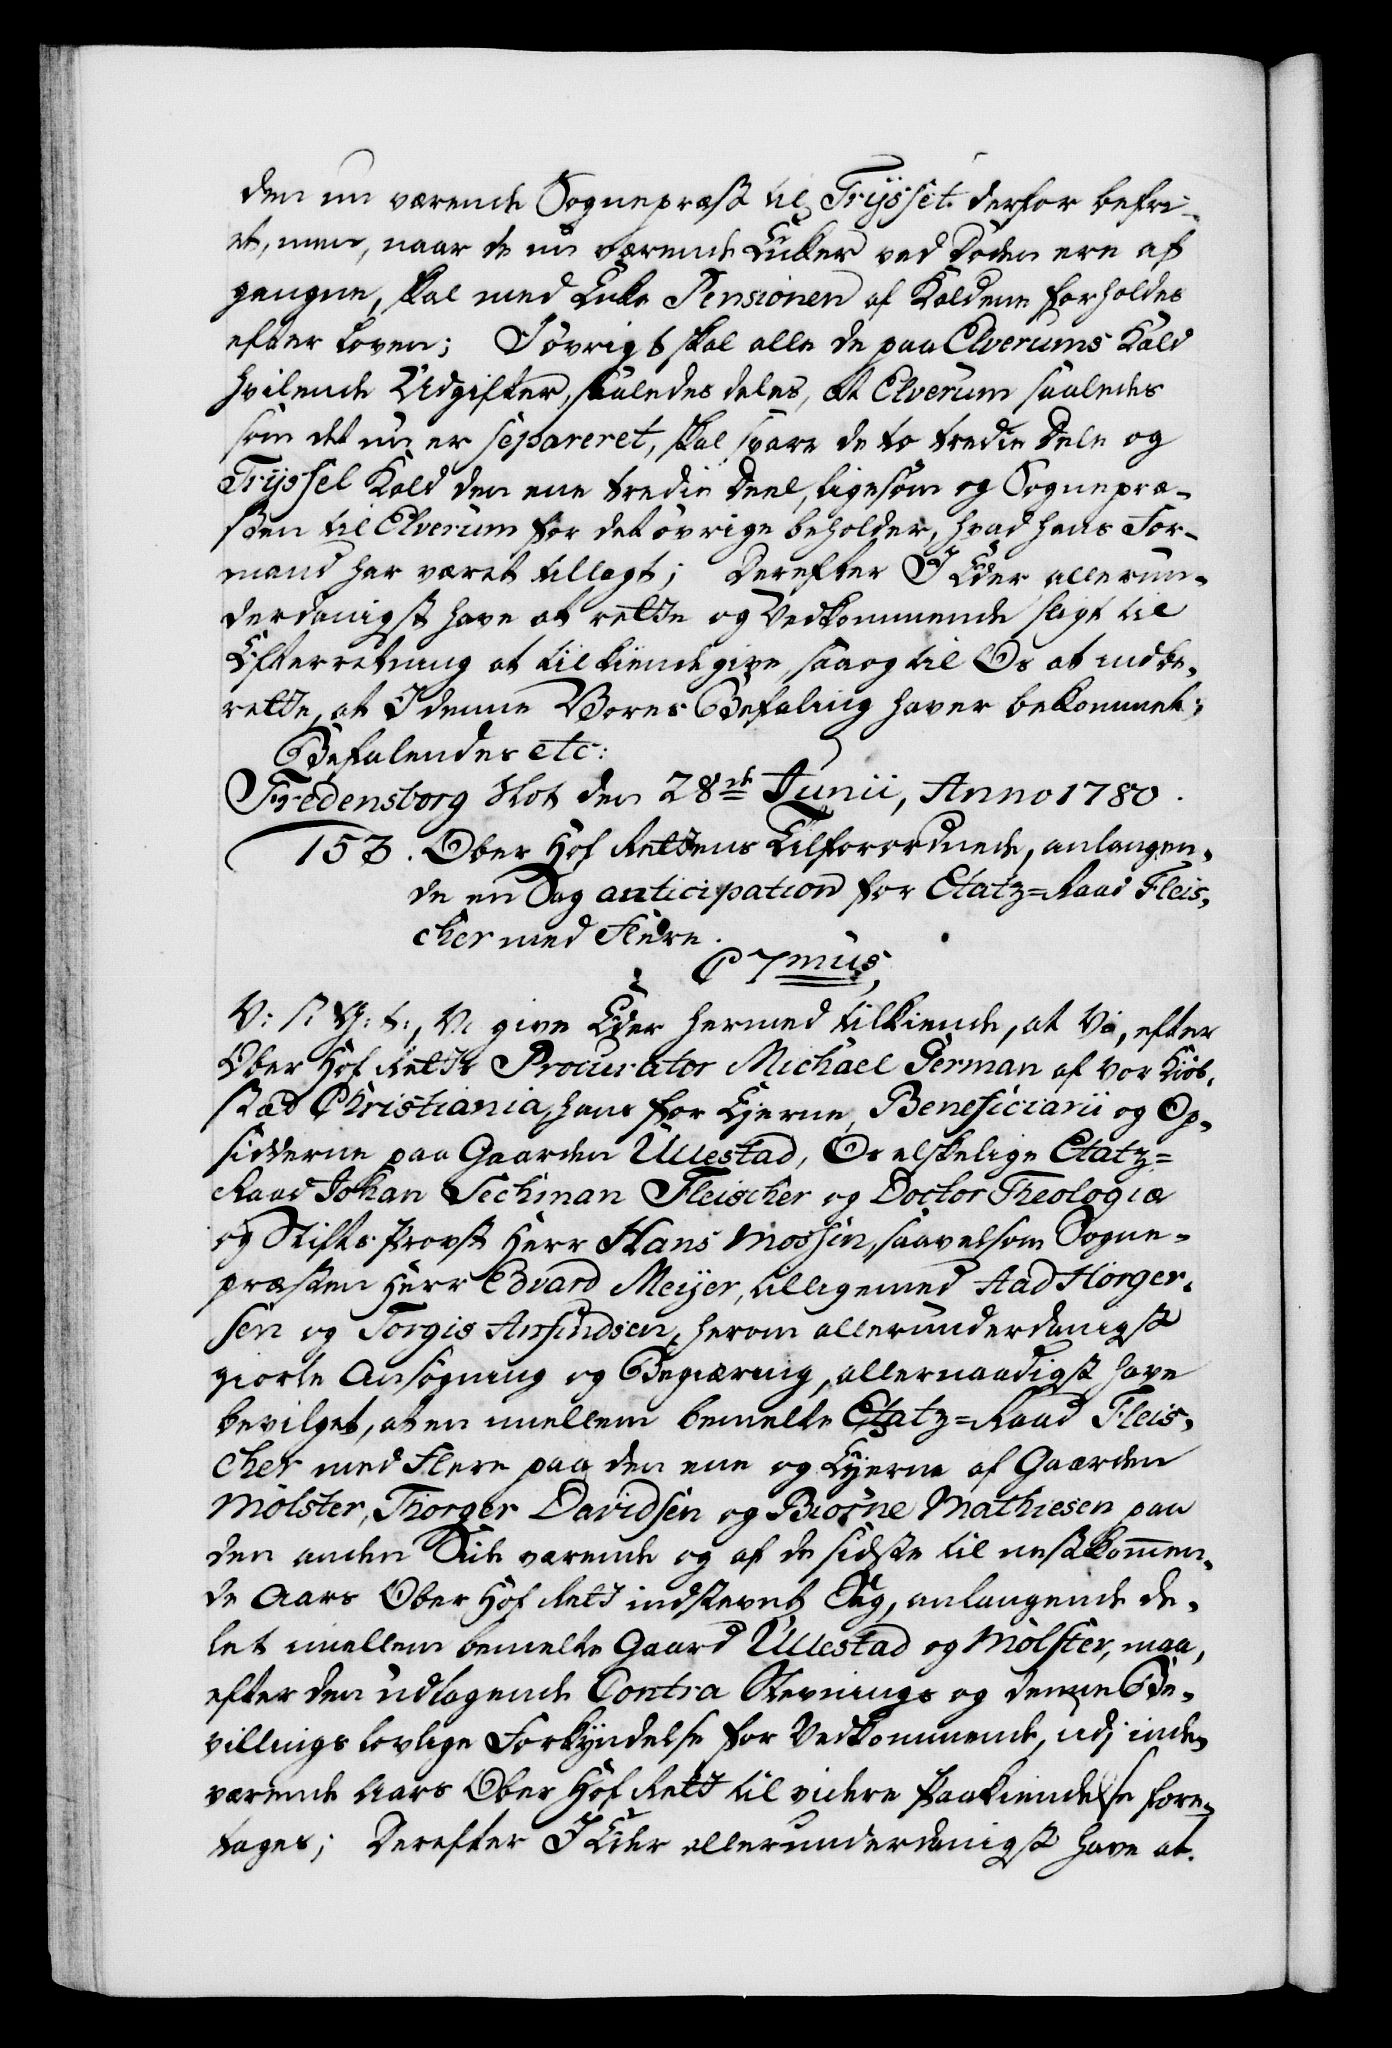 den nu værende Sognepræst til Tryssel derfor befri-
et, men, naar de nu værende Enker ved Døden ere af
gangne, skal med Enke Pensionen af Kaldene forholdes
efter loven; I øvrigt skal alle de paa Elverums Kald
hvilende Udgifter, saaledes deles, at Elverum saaledes
som det nu er separeret, skal svare de to tredie Dele og
Tryssel Kald den ene tredie Deel, ligesom og Sognepræ-
sten til Elverum for det øvrige beholder, hvad hans For-
mand har været tillagt; Derefter I Eder allerun-
derdanigst have at rette og Vedkommende sligt til
Efterretning at tilkiendegive, saa og til Os at indbe-
rette, at I denne Vores Befaling haver bekommet;
Befalendes etc:
Fredensborg Slot den 28de Junii, Anno 1780.
153. Ober Hof Rettens Tilforordnede, anlangen-
de en Sag anticipation for Etatz=Raad Fleis-
cher med Flere.
C 7mus,
V: S: G: T:, Vi give Eder hermed tilkiende, at Vi, efter
Ober Hof Retts Procurator Michael German af vor Kiøb-
stæd Christiania, hans for Ejerne, Beneficiarii og Op-
sidderne paa Gaarden Ullestad, Os elskelige Etatz=
Raad Johan Sechman Fleischer og Doctor Theologiæ
og Stifts Provst Herr Hans Mossin, saavelsom Sogne-
præsten Herr Edvard Meyer, tilligemed Aad Horger-
sen og Torgis Arfindsen, herom allerunderdanigst
giorte Ansøgning og Begiæring, allernaadigst have
bevilget, at en imellem bemelte Etatz=Raad Fleis-
cher med Flere paa den ene og Ejerne af Gaarden
Mölster, Thorger Davidsen og Biorne Mathiesen paa
den anden Side værende og af de sidste til nestkommen-
de Aars Ober Hof Rett indstevnt Sag, anlangende De-
let imellem bemelte Gaard Ullestad og Mölster, maa,
efter den udtagende Contra Stevnings og denne Be-
villings lovlige Forkyndelse for Vedkommende, udj inde-
værende Aars Ober Hof Rett til videre Paakiendelse fore-
tages; Derefter I Eder allerunderdanigst have at